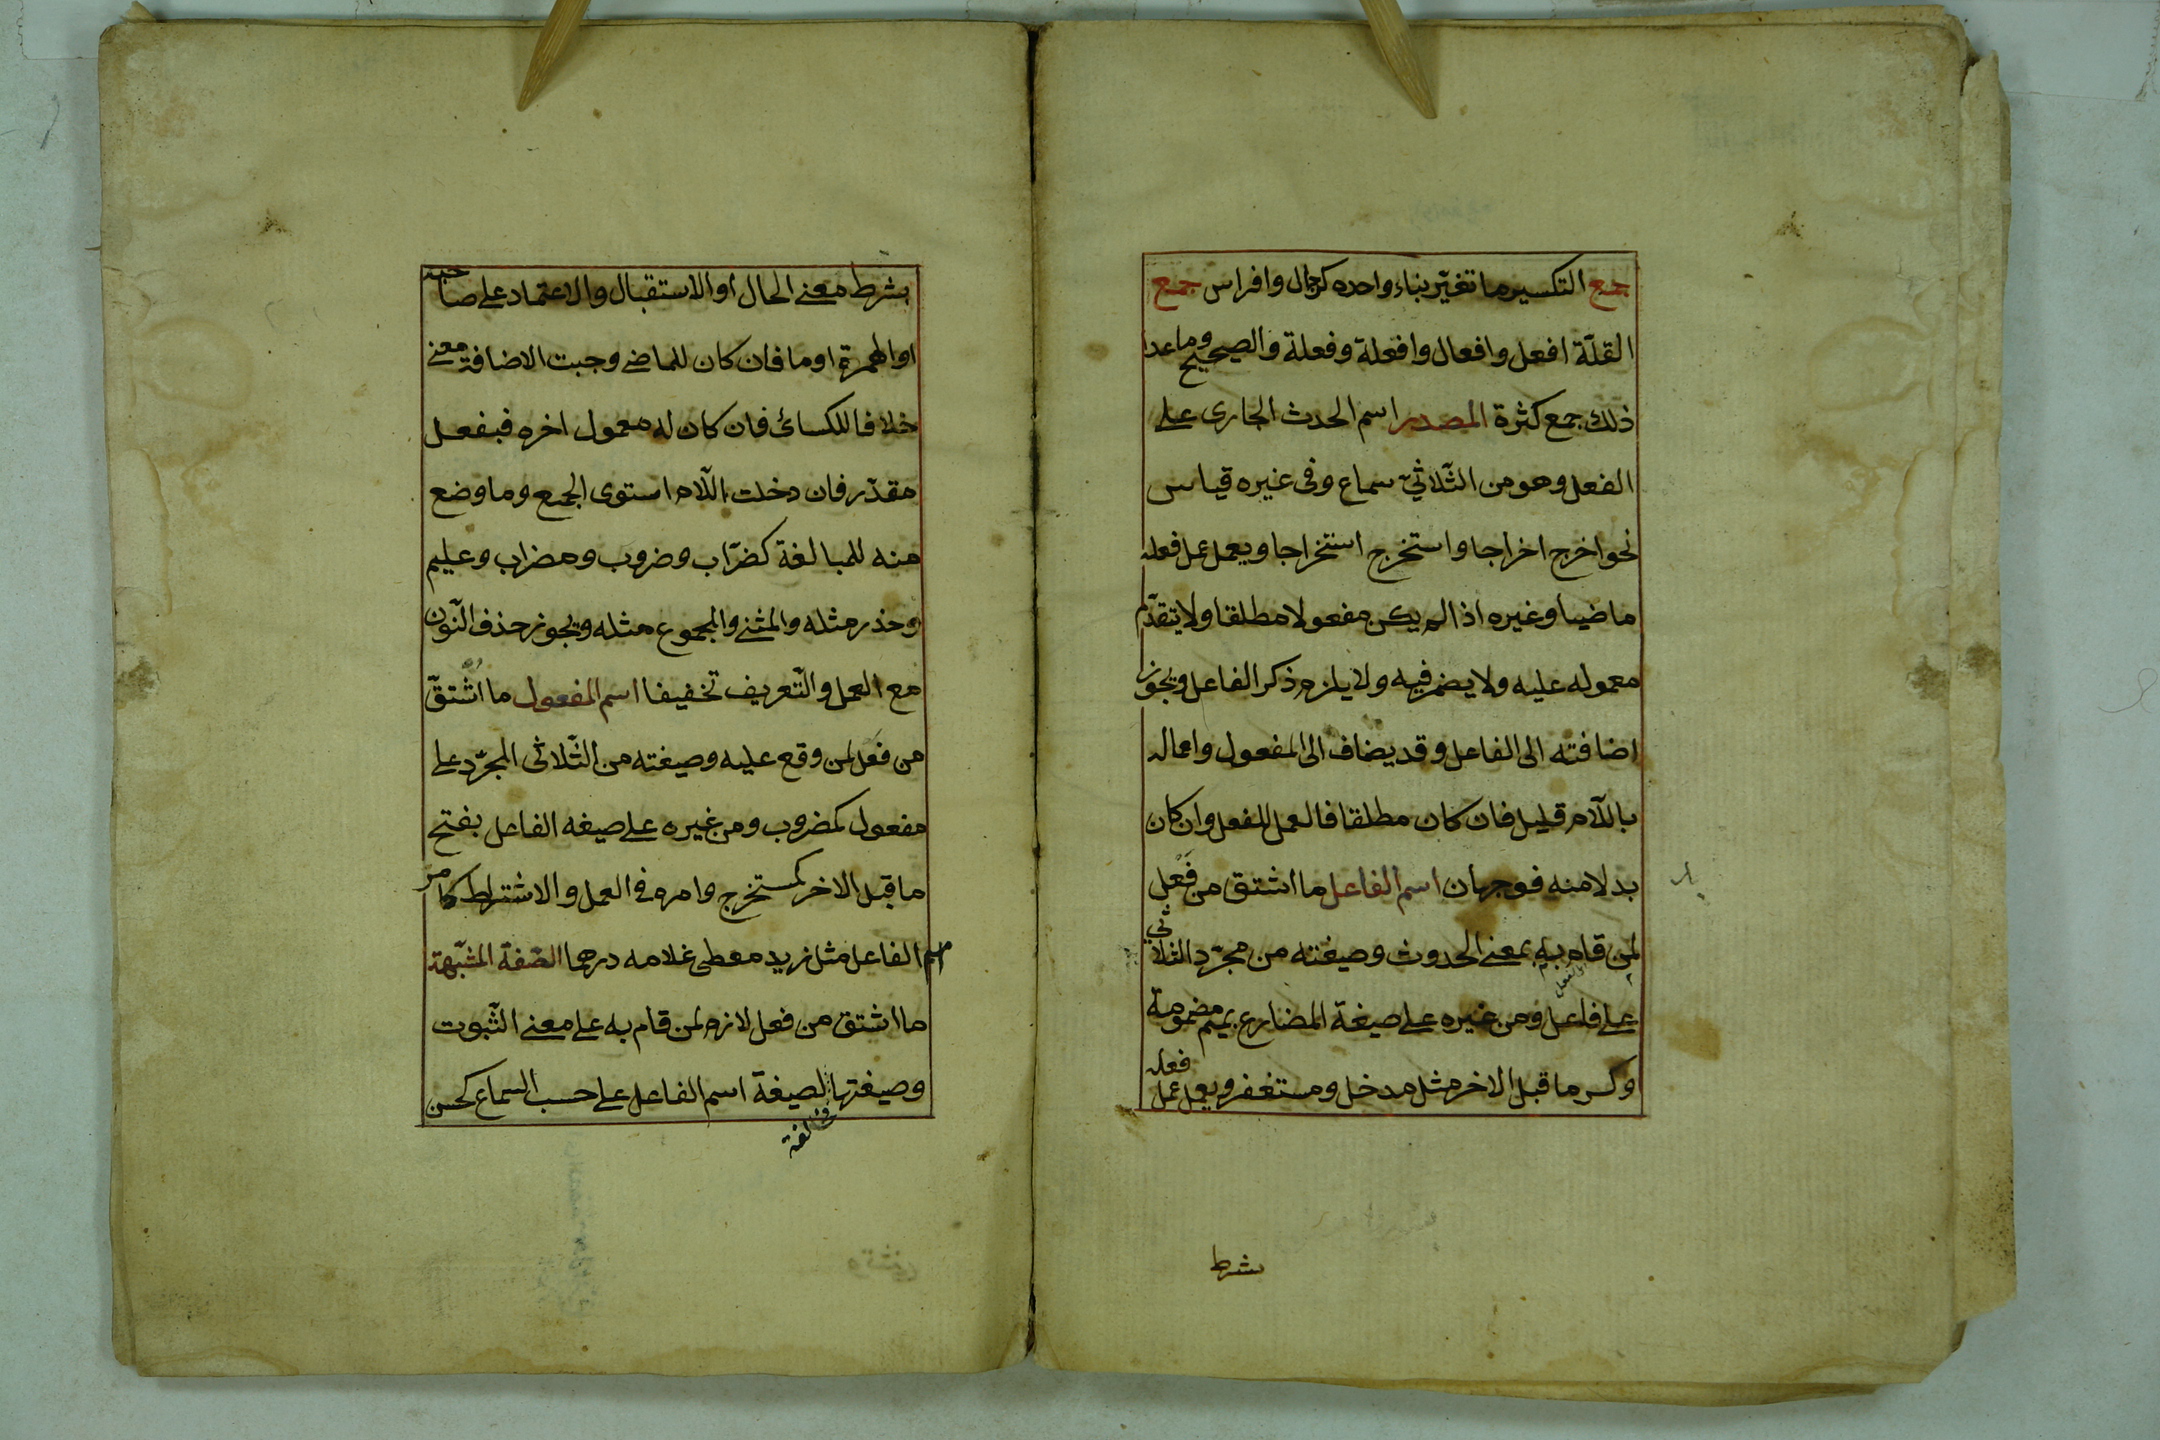 جمع التكسير ما تغيّر بناء واحده كرجال وافراس جمع
القلّة افعل وافعال وافعلة وفعلة والصحيح وما عدا
ذلك جمع كثرة المصدر اسم الحدث الجارى على
الفعل وهو من الثّلاثيّ سماع وفى غيره قياس
نحو اخرج اخراجا واستخرج استخراجا ويعمل عمل فعله
ماضيا وغيره اذا لم يكن مفعولا مطلقا ولا يتقدّم
معموله عليه ولا يضمر فيه ولا يلزم ذكر الفاعل ويجوز
اضافته الى الفاعل وقد يضاف الى المفعول واعماله
باللّام قليل فان كان مطلقا فالعمل للفعل وان كان
بدلا منه فوجهان اسم الفاعل ما اشتق من فَعْل
لمن قام به بمعنى الحدوث وصيغته من مجرّد الثلاثي
على فاعل ومن غيره على صيغة المضارع بميم مضمومة
وكسر ما قبل الاخر مثل مدخل ومستغفر ويعمل عمل فعله
شرط
بشرط معنى الحال او الاستقبال والاعتماد على صاحبه
او الهمزة او ما فان كان للماضى وجبت الاضافة معنى
خلافا للكسائ فان كان له معمول اخره فبفعل
مقدّر فان دخلت اللّام استوى الجمع وما وضع
منه للمبالغة كضرّاب وضروب ومضراب وعليم
وحذر مثله والمثنى والمجموع مثله ويجوز حذف النّون
مع العمل والتّعريف تخفيفا اسم المفعول ما اشُتقّ
من فَعَل لمن وقع عليه وصيغته من الثّلاثى المجرّد على
مفعول كمضروب ومن غيره على صيغه الفاعل بفتح
ما قبل الاخر كمستخرج وامره فى العمل والاشتراط كما مر
اسم الفاعل مثل زيد معطى غلامه درهما الصّفة المشبّهة
ما اشتق من فعل لازم لمن قام به على معنى الثّبوت
وصيغتها لصيغة اسم الفاعل على حسب السماع كحسن